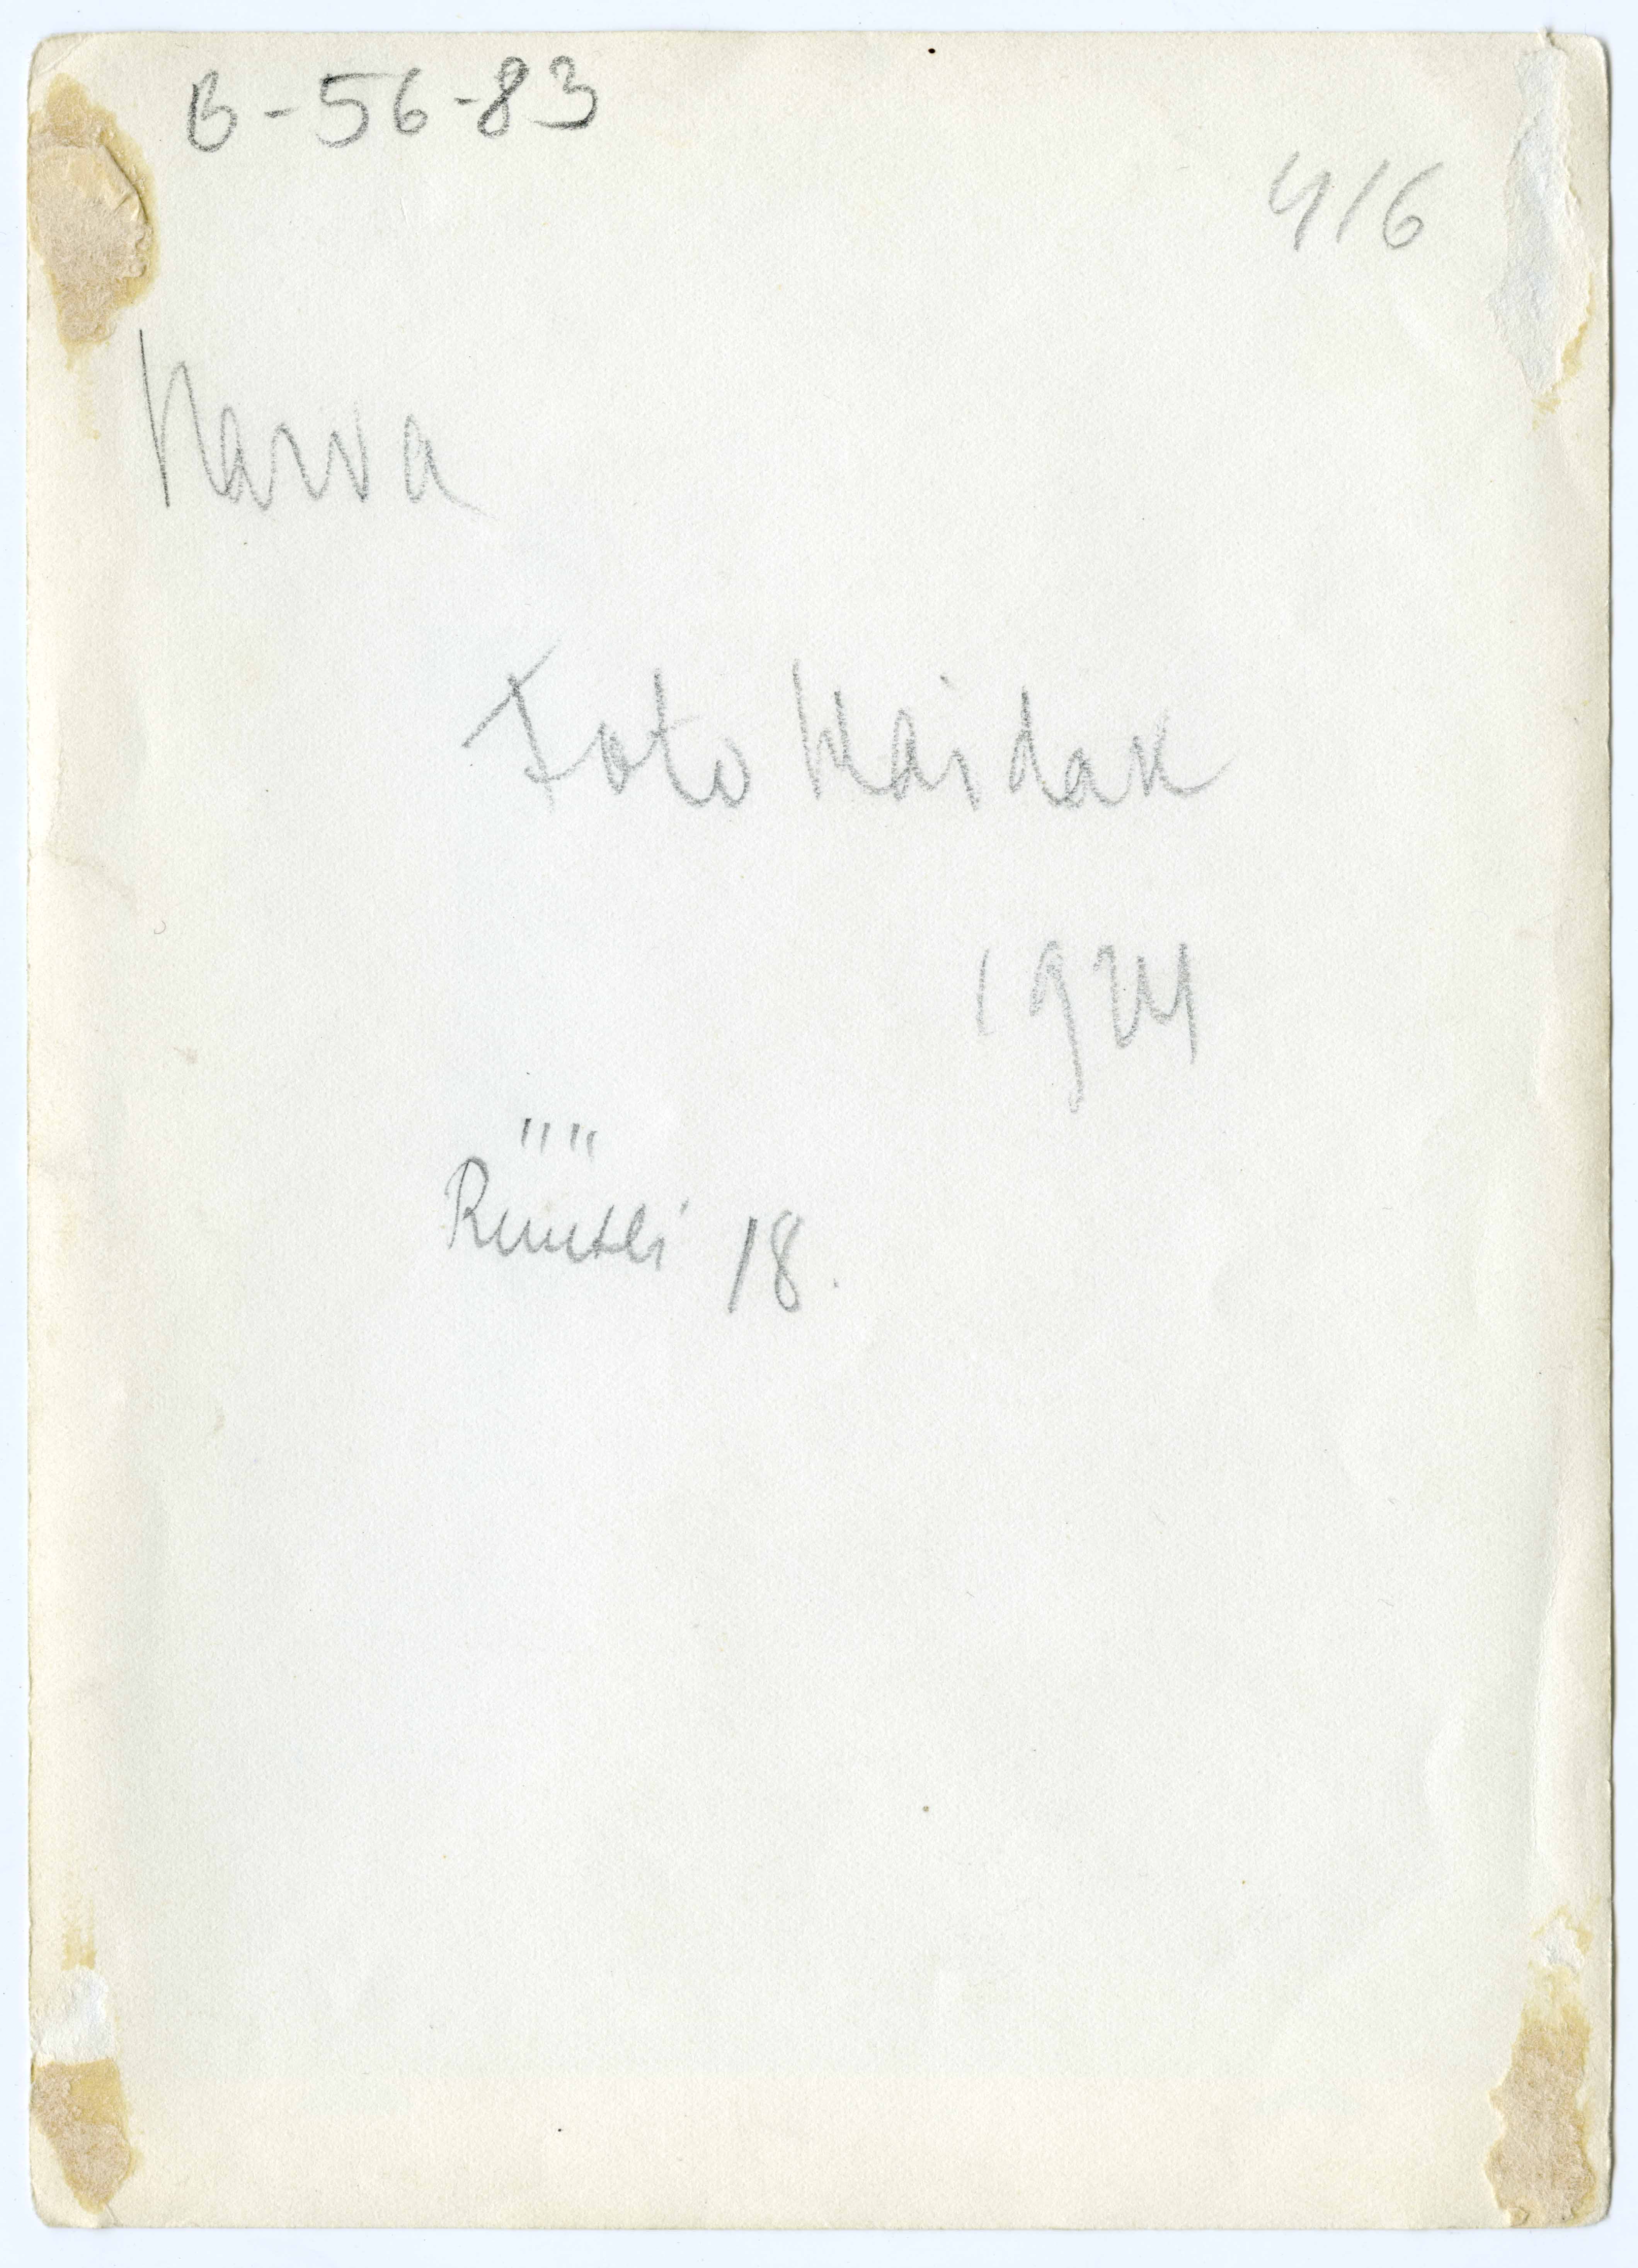 B-56-83
416
Narva
Foto Maidak
1924
Rüütli 18.